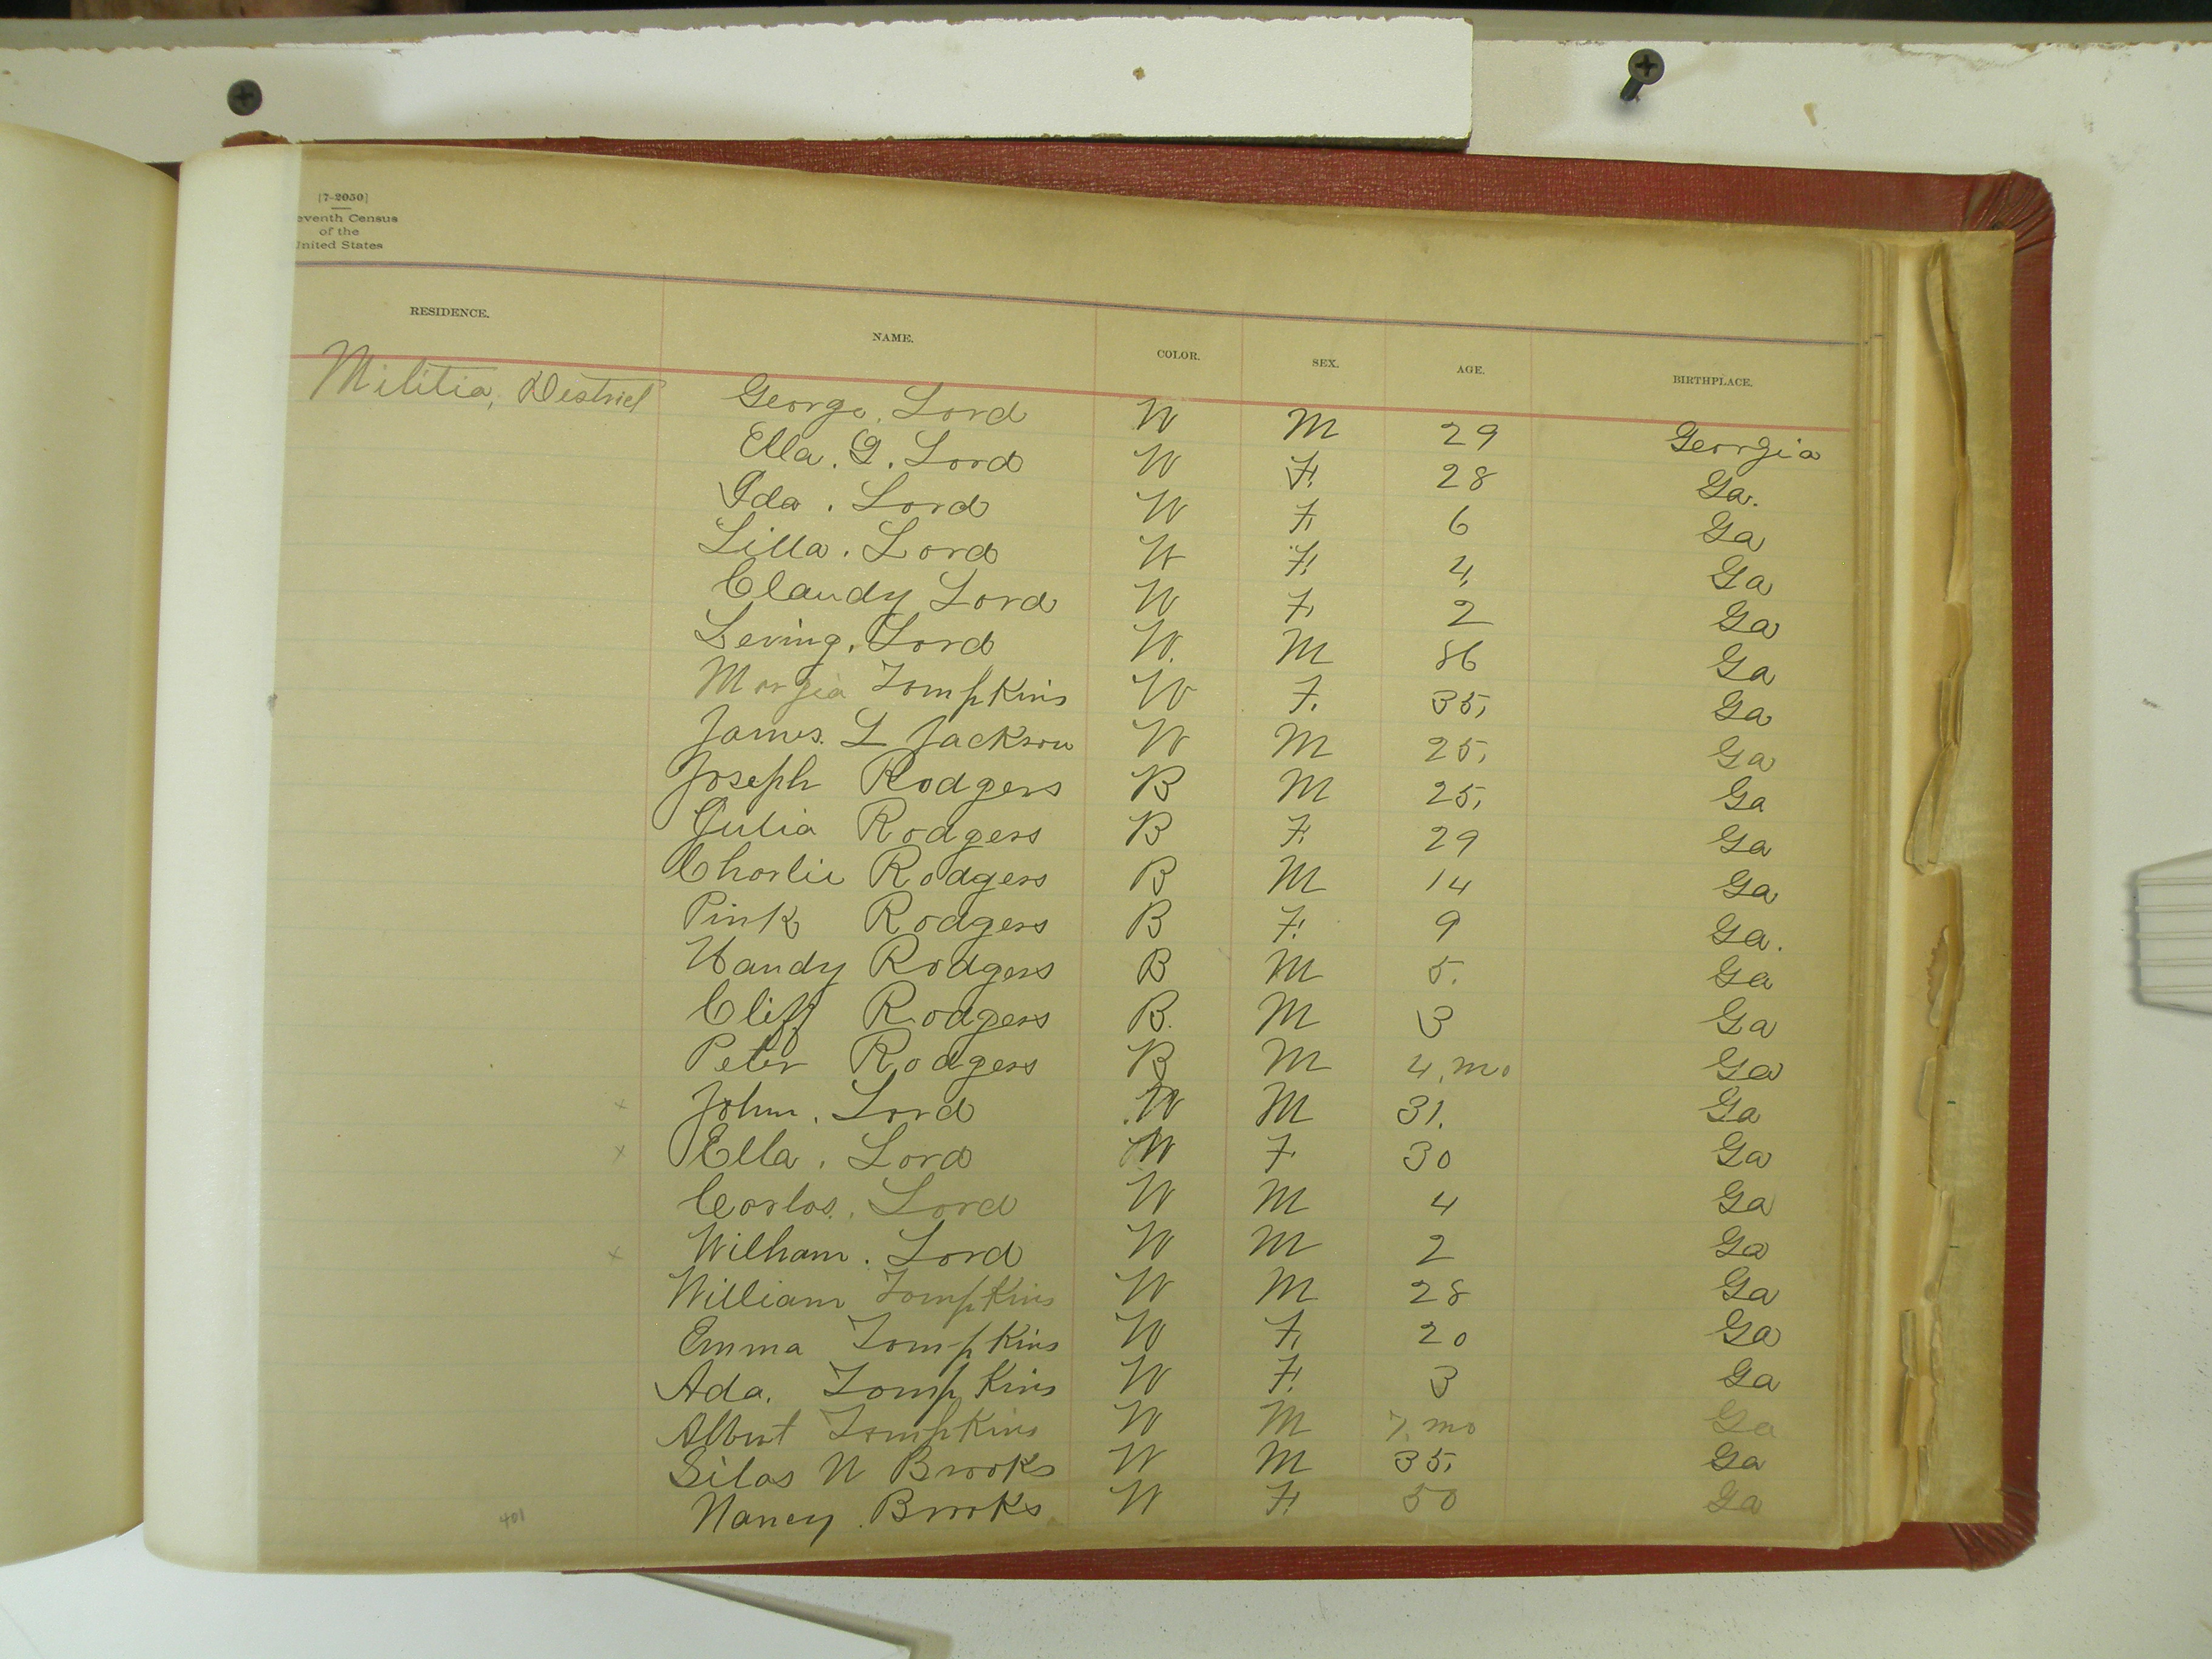 [7-2050]
eventh Census
of the
United States
RESIDENCE. NAME. COLOR. SEX. AGE. BIRTHPLACE.
Militia, District George, Lord W M 29 Georgia
Ella. G. Lord W F. 28 Ga.
Ida. Lord W F 6 Ga
Lilla. Lord W F. 4, Ga
Claudy Lord W F 2 Ga
Lord W. M 86 Ga
Tompkins W F. 35, Ga
James. L Jackson W M 25, Ga
Joseph Rodgers B M 25, Ga
Julia Rodgers B F 29 Ga
Charlie Rodgers B M 14 Ga
Pink Rodgers B F. 9 Ga.
Handy Rodgers B M 5. Ga
Cliff Rodgers B. M 3 Ga
Peter Rodgers B M 4, mo Ga
x John. Lord W M 31. Ga
x Ella. Lord W F 30 Ga
Carlos. Lord W M 4 Ga
x William. Lord W M 2 Ga
William Tompkins W M 28 Ga
Emma Tompkins W F 20 Ga
Ada. Tompkins W F. 3 Ga
Albert Tompkins W M 7, mo Ga
Silas N Brooks W M 35, Ga
Nancy. Brooks W F. 50 Ga
401